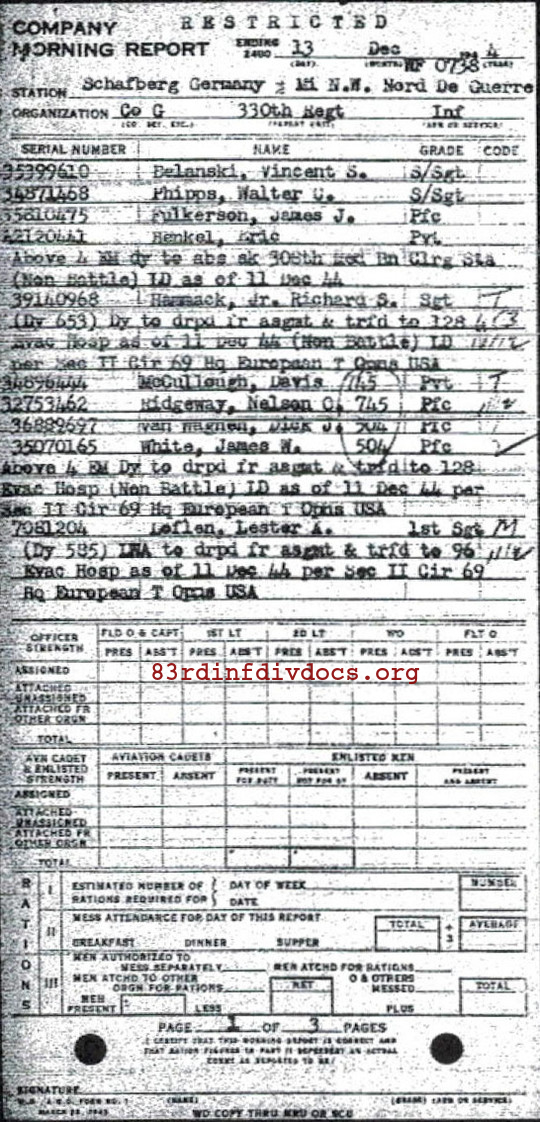 RESTRICTED
COMPANY
MORNING REPORT ENDING 2400 13 Dec 194 4
WF 0738
STATION Schafberg Germany Mi N.W. Nord De Guerre
ORGANIZATION Co G 330th Regt Inf
SERIAL NUMBER NAME GRADE CODE
35399610 Belanski, Vincent S. S/Sgt
34871468 Phipps, Walter C. S/Sgt
35810475 Fulkerson, James J. Pfc
42120441 Henkel, Eric Pvt
Above 4 EM dy to abs sk 308th Med Bn Clrg Sta
(Non Battle) LD as of 11 Dec 44
39140968 Hammack, Jr. Richard S. Sgt T
(Dy 653) Dy to drpd fr asgmt & trfd to 128
Evac Hosp as of 11 Dec 44 (Non Battle) LD
per Sec II Cir 69 Hq European T Opns USA
34896444 McCullough, Davis 745 Pvt T
32753462 Ridgeway, Nelson O. 745 Pfc
36889697 Van Wagnen, Dick J. 504 Pfc
35070165 White, James W. 504 Pfc
Above 4 EM Dy to drpd fr asgmt & trfd to 128
Evac Hosp (Non Battle) LD as of 11 Dec 44 per
Sec II Cir 69 Hq European T Opns USA
7081204 Leflen, Lester A. 1st Sgt M
(Dy 585) LWA to drpd fr asgmt & trfd to 96
Evac Hosp as of 11 Dec 44 per Sec II Cir 69
Hq European T Opns USA
OFFICER STRENGTH FLD O & CAPT 1ST LT 2D LT WO FLT O
PRES ABS'T PRES ABS'T PRES ABS'T PRES ABS'T PRES ABS'T
ASSIGNED
83rdinfdivdocs.org
ATTACHED UNASSIGNED
ATTACHED FR OTHER ORGN
TOTAL
AVN CADET & ENLISTED STRENGTH AVIATION CADETS ENLISTED MEN
PRESENT ABSENT PRESENT FOR DUTY PRESENT NOT FOR DY ABSENT PRESENT AND ABSENT
ASSIGNED
ATTACHED UNASSIGNED
ATTACHED FR OTHER ORGN
TOTAL
RATIONS
I ESTIMATED NUMBER OF RATIONS REQUIRED FOR DAY OF WEEK DATE NUMBER
II MESS ATTENDANCE FOR DAY OF THIS REPORT TOTAL ÷ 3 AVERAGE
BREAKFAST DINNER SUPPER
III MEN AUTHORIZED TO MESS SEPARATELY MEN ATCHD FOR RATIONS
MEN ATCHD TO OTHER ORGN FOR RATIONS NET O & OTHERS MESSED TOTAL
MEN PRESENT LESS PLUS
PAGE 1 OF 3 PAGES
I CERTIFY THAT THIS MORNING REPORT IS CORRECT AND
THAT RATION FIGURES IN PART II REPRESENT AN ACTUAL
COUNT AS REPORTED TO ME
SIGNATURE
W.D. A.G.O. FORM NO. 1 (NAME) (GRADE) (ARM OR SERVICE)
MARCH 22, 1943
WD COPY THRU MRU OR SCU